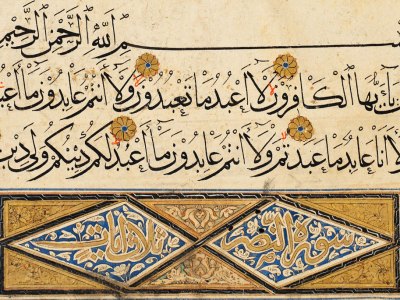 بسم الله الرحمن الرحيم
يأيها الكافرون لا أعبد ما تعبدون ولا أنتم عابدون ما أعبد
ولا أنا عابد ما عبدتم ولا أنتم عابدون ما أعبد لكم دينكم ولي دين
سورة النصر ثلاث آيات